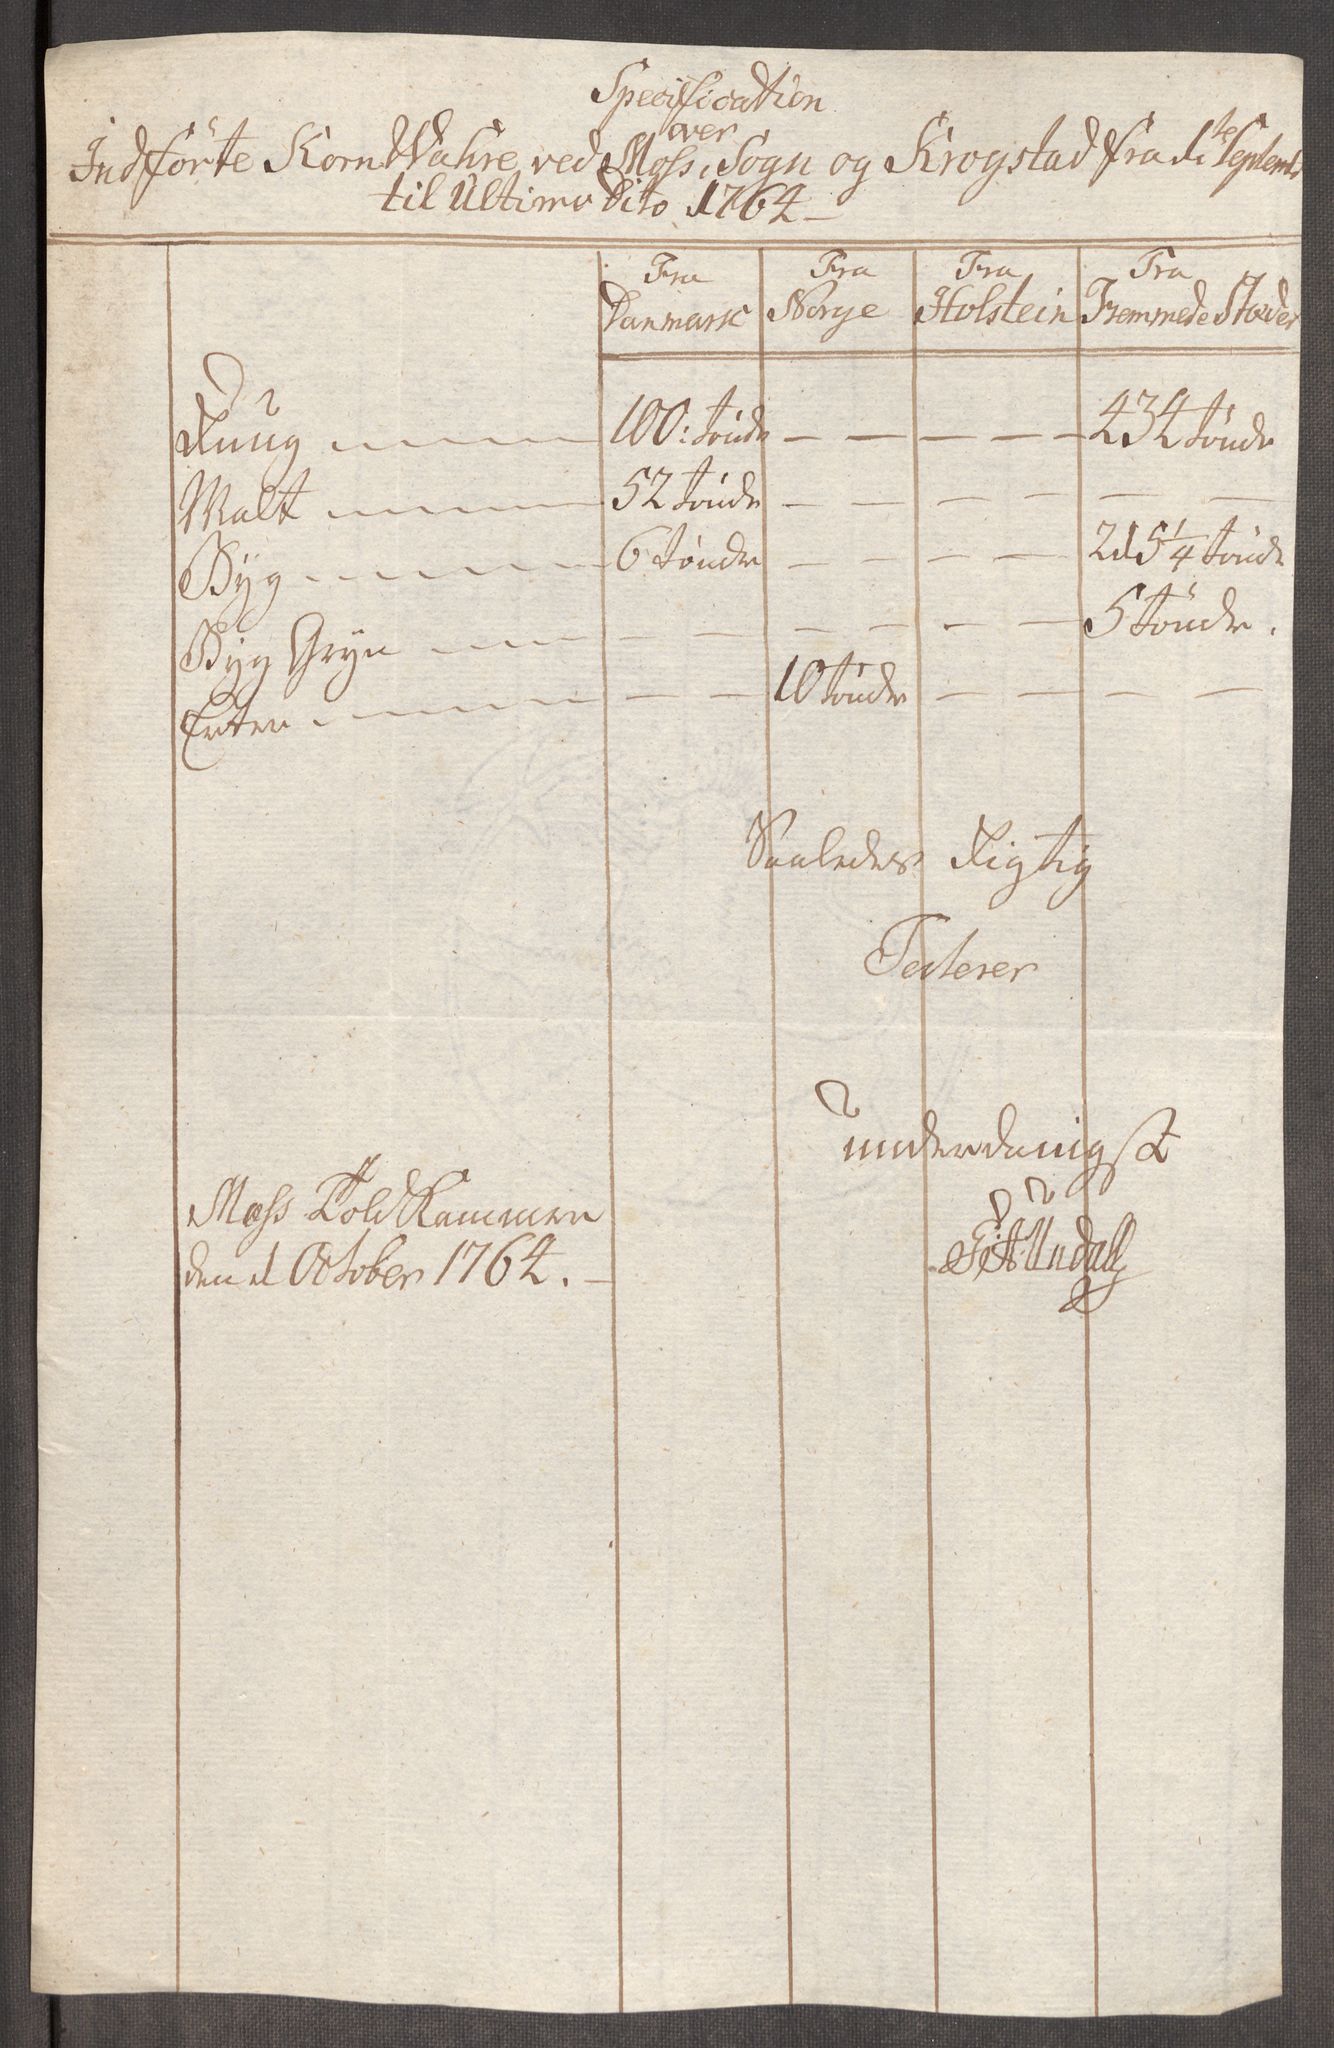 Specification
over
Indförte Korn Wahre ved Moss, Sogn og Krogstad fra 1te Septembr
til Ultimo Dito 1764 —
Fra Danmark Fra Norge Fra Holstein Fra Fremmede Stæder
Ruug 100: tönder — — — — 434 tönder
Malt 52 tönder — — — — — —
Byg 6 tönder — — — — 215 1/4 tönder
Byg Gryn — — — — — — 5 tönder.
Erter — — 10 tönder — — — —
Saaledes Rigtig
Testerer
underdanigst
Moss Told Kammer
den 1 October 1764. —